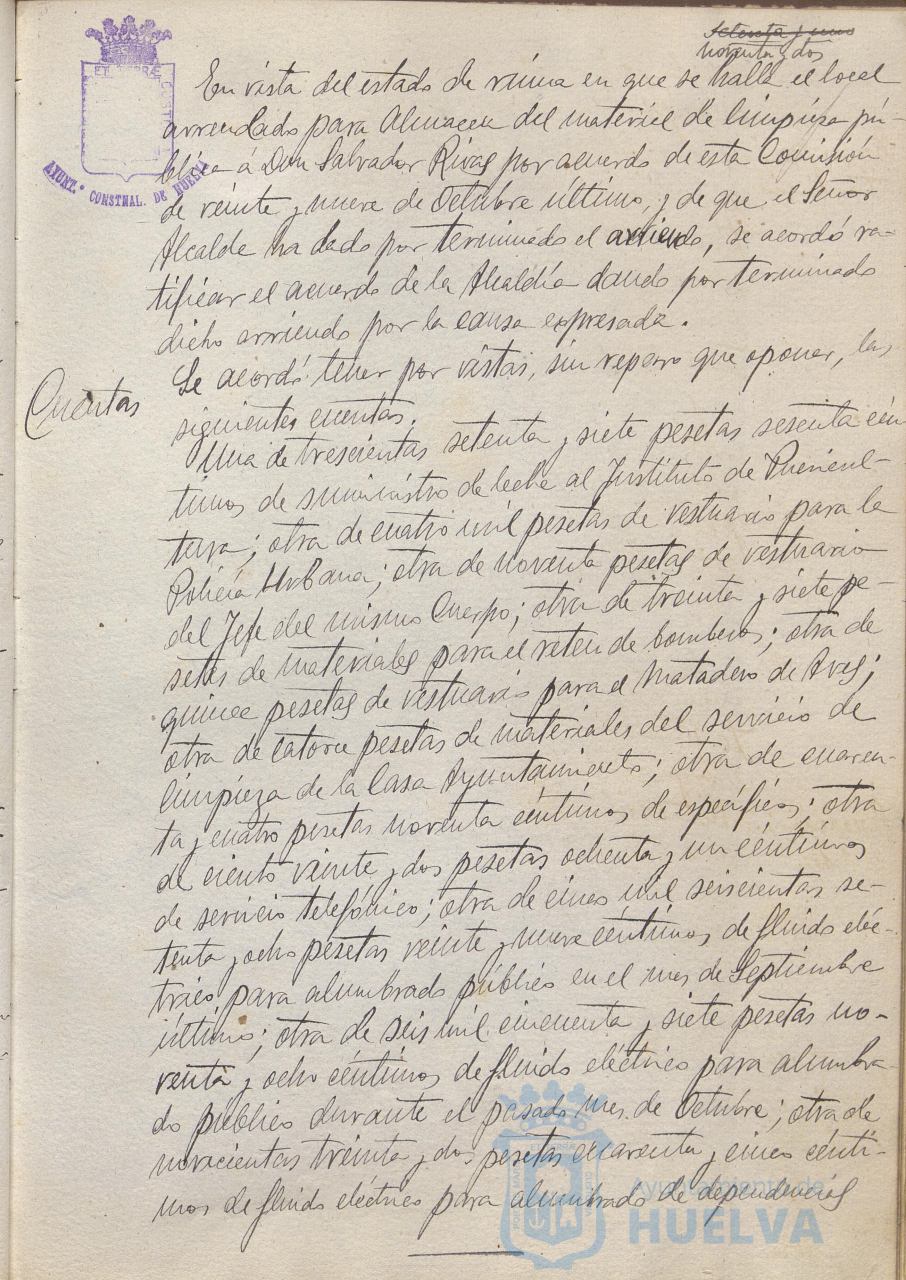 Setenta y uno
noventa y dos
En vista del estado de ruina en que se halla el local
arrendado para Almacen del material de limpieza pú-
blica á Don Salvador Rivas por acuerdo de esta Comisión
de veinte y nueve de Octubre último, y de que el Señor
Alcalde ha dado por terminado el arriendo, se acordó ra-
tificar el acuerdo de la Alcaldía dando por terminado
dicho arriendo por la causa expresada.
Cuentas
Se acordó tener por vistas, sin reparo que oponer, las
siguientes cuentas.
Una de trescientas setenta y siete pesetas sesenta cén
timos de suministro de leche al Instituto de Puericul-
tura; otra de cuatro mil pesetas de vestuario para la
Policia Urbana; otra de noventa pesetas de vestuario
del Jefe del mismo Cuerpo; otra de treinta y siete pe-
setas de materiales para el reten de bomberos; otra de
quince pesetas de vestuario para el Matadero de Aves;
otra de catorce pesetas de materiales del servicio de
limpieza de la Casa Ayuntamiento; otra de cuaren-
ta y cuatro pesetas noventa céntimos de específicos; otra
de ciento veinte y dos pesetas ochenta y un céntimos
de servicio telefónico; otra de cinco mil seiscientas se-
tenta y ocho pesetas veinte y nueve céntimos de fluido eléc-
trico para alumbrado público en el mes de Septiembre
último; otra de seis mil cincuenta y siete pesetas no-
venta y ocho céntimos de fluido eléctrico para alumbra-
do publico durante el pasado mes de Octubre; otra de
novecientas treinta y dos pesetas cuarenta y cinco cénti-
mos de fluido eléctrico para alumbrado de dependencias
AYUNT.º CONSTNAL. DE HUELVA
Ayuntamiento de
HUELVA